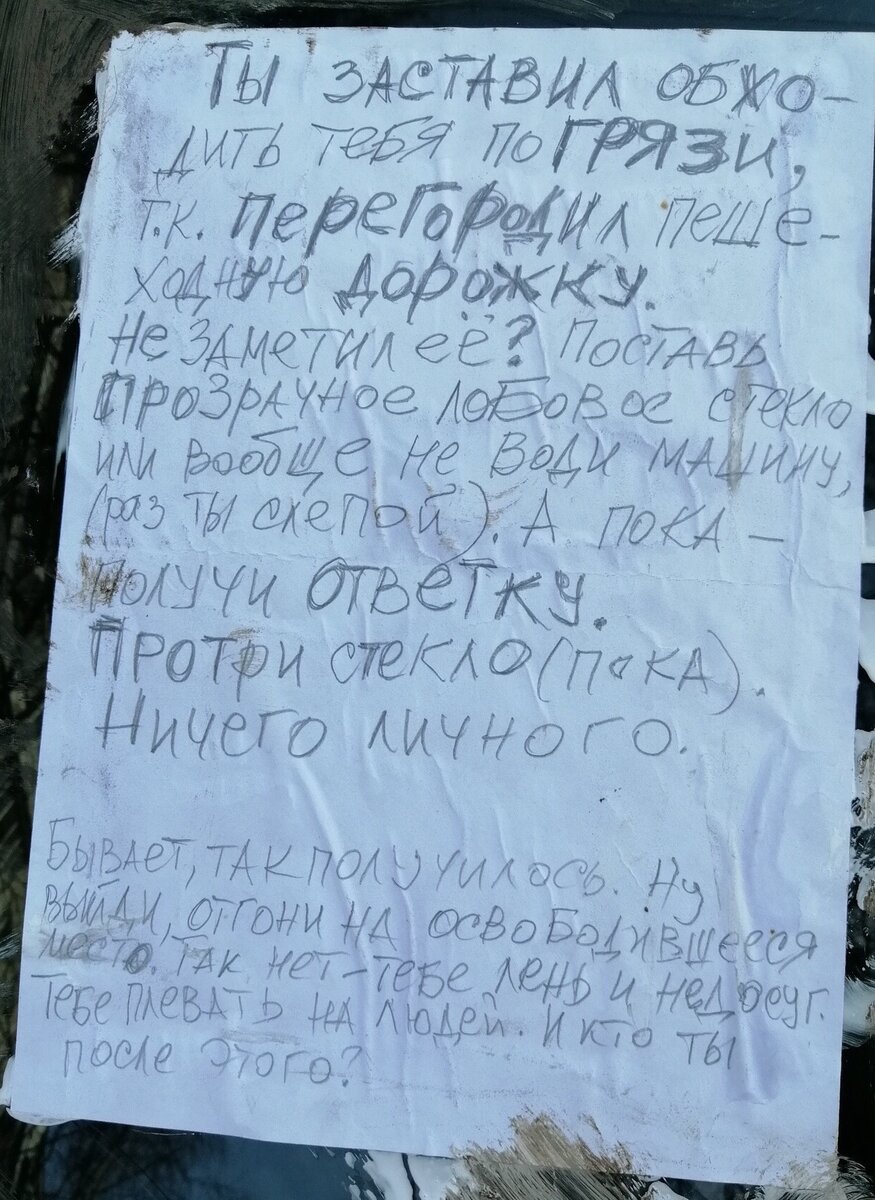 Ты заставил обхо-
дить тебя по грязи,
т.к. перегородил пеше-
ходную дорожку.
Не заметил её? Поставь
прозрачное лобовое стекло
или вообще не води машину,
(раз ты слепой). А пока –
получи ответку.
Протри стекло (пока).
Ничего личного.
Бывает, так получилось. Ну
выйди, отгони на освободившееся
место. Так нет – тебе лень и недосуг.
Тебе плевать на людей. И кто ты
после этого?